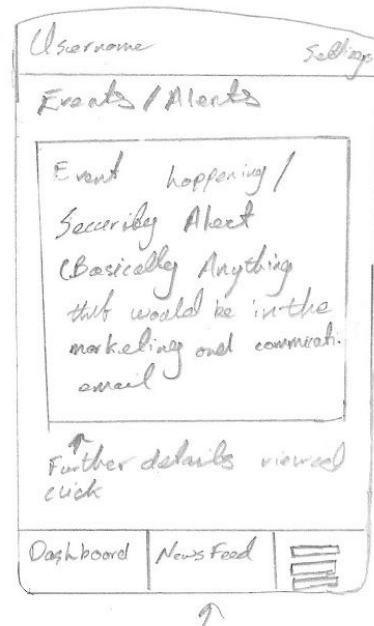 Username
Settings
Events / Alerts
Event happening /
Security Alert
(Basically Anything
that would be in the
marketing and communicati.
email
Further details viewed
click
Dashboard
News Feed